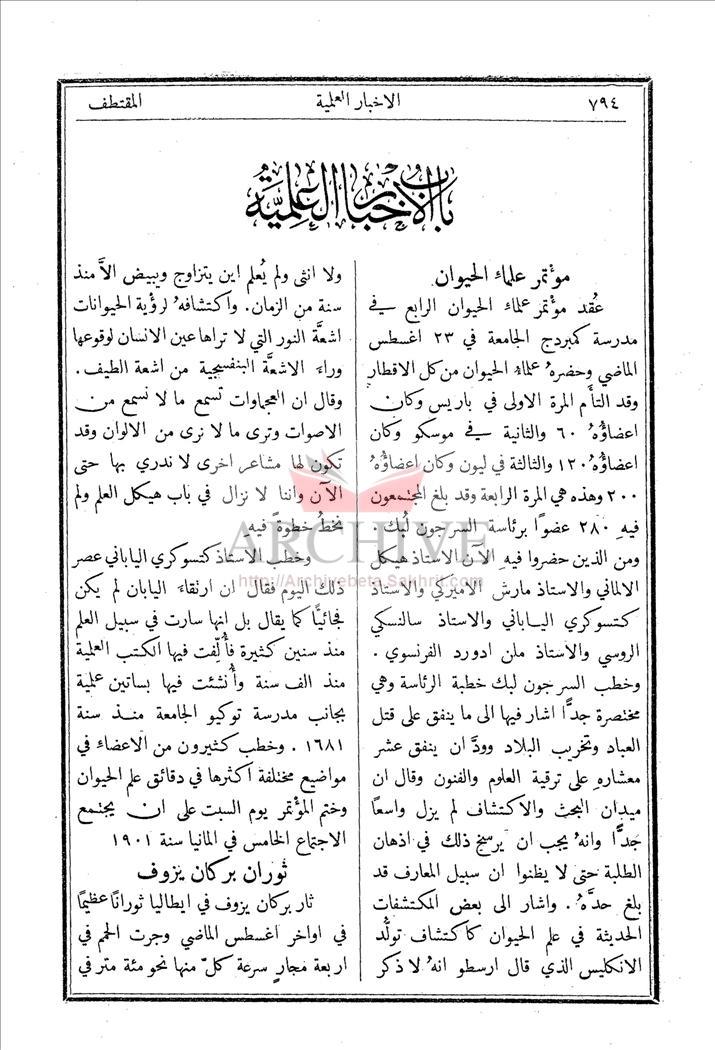 ٧٩٤
الاخبار العلمية
المقتطف
باب الاخبار العلمية
مؤتمر علماء الحيوان
عُقد مؤتمر علماء الحيوان الرابع في
مدرسة كمبردج الجامعة في ٢٣ اغسطس
الماضي وحضرهُ علماء الحيوان من كل الاقطار
وقد التأم المرة الاولى في باريس وكان
اعضاؤهُ ٦٠ والثانية في موسكو وكان
اعضاؤهُ ١٢٠ والثالثة في ليون وكان اعضاؤهُ
٢٠٠ وهذه هي المرة الرابعة وقد بلغ المجتمعون
فيهِ ٢٨٠ عضوًا برئاسة السر جون لُبك .
ومن الذين حضروا فيهِ الآن الاستاذ هيكل
الالماني والاستاذ مارش الاميركي والاستاذ
كتسوكري الياباني والاستاذ سالنسكي
الروسي والاستاذ ملن ادورد الفرنسوي .
وخطب السر جون لبك خطبة الرئاسة وهي
مختصرة جدًّا اشار فيها الى ما ينفق على قتل
العباد وتخريب البلاد وودَّ ان ينفق عشر
معشارهِ على ترقية العلوم والفنون وقال ان
ميدان البحث والاكتشاف لم يزل واسعًا
جدًّا وانهُ يجب ان يرسخ ذلك في اذهان
الطلبة حتى لا يظنوا ان سبيل المعارف قد
بلغ حدَّهُ . واشار الى بعض المكتشفات
الحديثة في علم الحيوان كاكتشاف تولُّد
الانكليس الذي قال ارسطو انهُ لا ذكر
ولا انثى ولم يُعلم اين يتزاوج ويبيض الَّا منذ
سنة من الزمان. واكتشافهُ لرؤية الحيوانات
اشعَّة النور التي لا تراها عين الانسان لوقوعها
وراءَ الاشعَّة البنفسجية من اشعة الطيف.
وقال ان العجماوات تسمع ما لا نسمع من
الاصوات وترى ما لا نرى من الالوان وقد
تكون لها مشاعر اخرى لا ندري بها حتى
الآن واننا لا نزال في باب هيكل العلم ولم
نخطُ خطوةً فيهِ
وخطب الاستاذ كتسوكري الياباني عصر
ذلك اليوم فقال ان ارتقاءَ اليابان لم يكن
فجائيًّا كما يقال بل انها سارت في سبيل العلم
منذ سنين كثيرة فأُلّفت فيها الكتب العلمية
منذ الف سنة وأُنشئت فيها بساتين علمية
بجانب مدرسة توكيو الجامعة منذ سنة
١٦٨١ . وخطب كثيرون من الاعضاء في
مواضيع مختلفة اكثرها في دقائق علم الحيوان
وختم المؤتمر يوم السبت على ان يجتمع
الاجتماع الخامس في المانيا سنة ١٩٠١
ثوران بركان يزوف
ثار بركان يزوف في ايطاليا ثورانًا عظيمًا
في اواخر اغسطس الماضي وجرت الحمم في
اربعة مجارٍ سرعة كلّ منها نحو مئة متر في
ARCHIVE
http://Archivebeta.Sakhrit.com